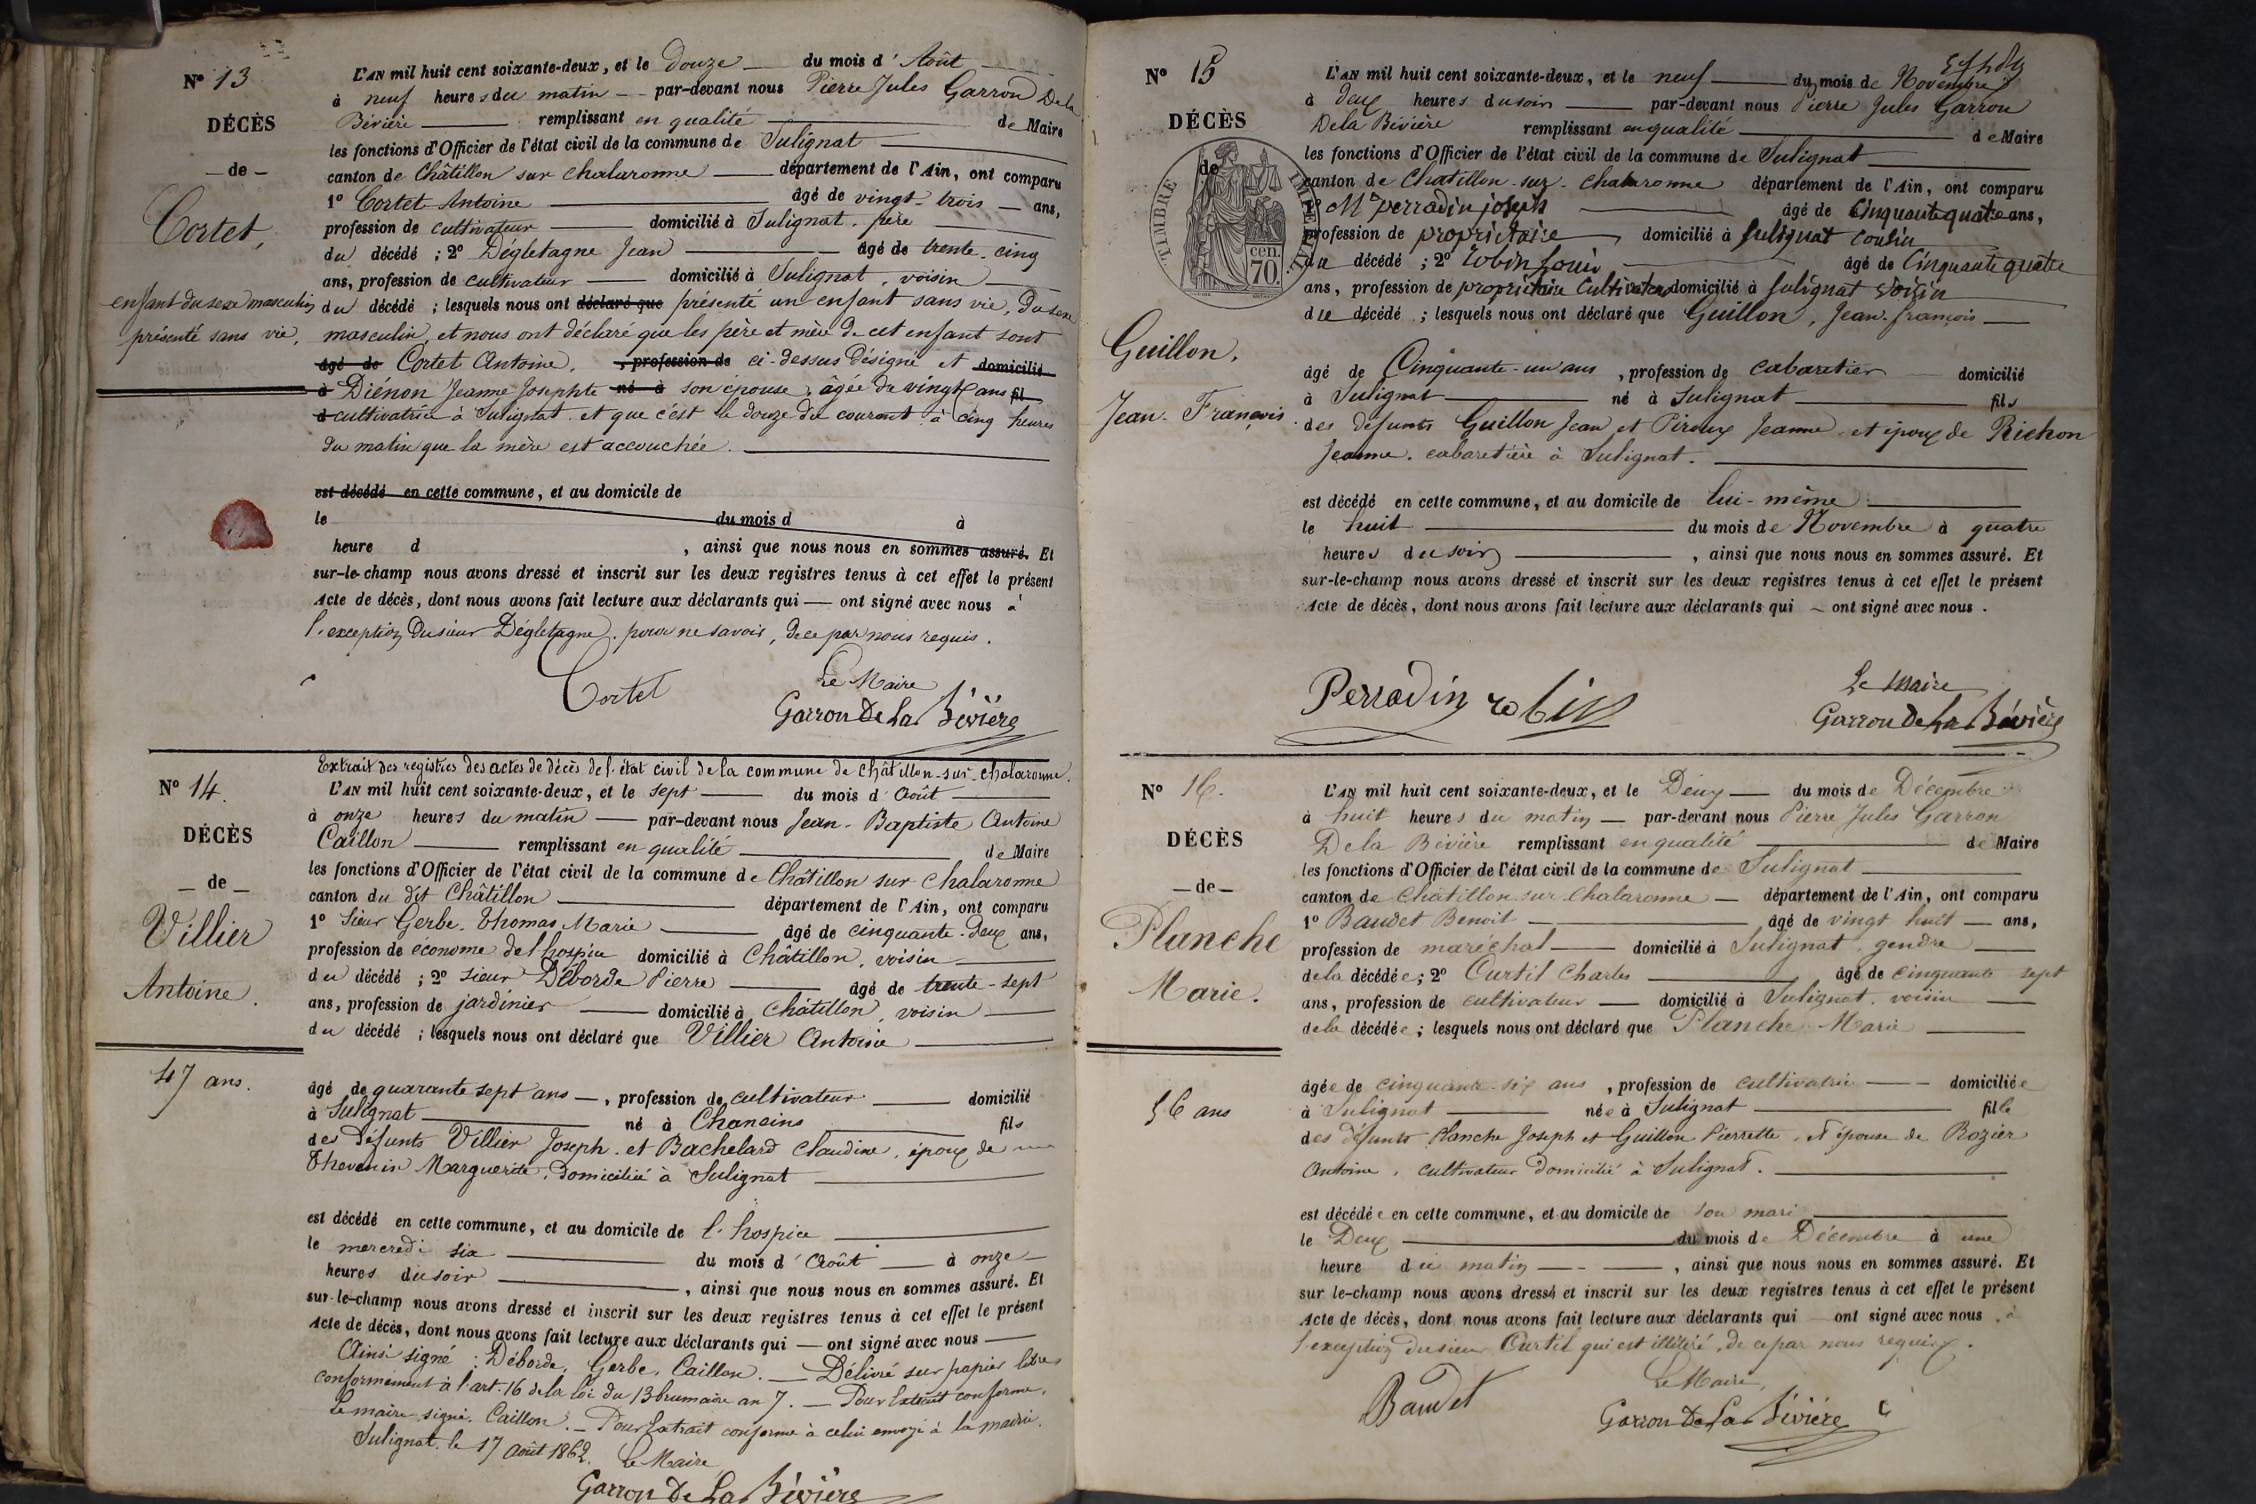 Nº 13
DÉCÈS
— de —
Cortet,
enfant du sexe masculin
présenté sans vie,
L'AN mil huit cent soixante-deux, et le douze du mois d'Août
à neuf heures du matin par-devant nous Pierre Jules Garron De la
Bévière remplissant en qualité de Maire
les fonctions d'Officier de l'état civil de la commune de Sulignat
canton de Châtillon sur chalaronne département de l'Ain, ont comparu
1º Cortet Antoine âgé de vingt-trois ans,
profession de cultivateur domicilié à Sulignat, père
du décédé ; 2º Dégletagne Jean âgé de trente-cinq
ans, profession de cultivateur domicilié à Sulignat, voisin
du décédé ; lesquels nous ont déclaré que présenté un enfant sans vie, du sexe
masculin, et nous ont déclaré que les père et mère de cet enfant sont
âgé de Cortet Antoine, , profession de ci-dessus désigné et domicilié
à Diénon Jeanne Josephte né à son épouse, âgée de vingt ans fil
d cultivatrice à Sulignat et que c'est le douze du courant à cinq heures
du matin que la mère est accouchée.
est décédé en cette commune, et au domicile de
le du mois d à
heure d , ainsi que nous nous en sommes assuré. Et
sur-le-champ nous avons dressé et inscrit sur les deux registres tenus à cet effet le présent
Acte de décès, dont nous avons fait lecture aux déclarants qui — ont signé avec nous à
l'exception du sieur Dégletagne, pour ne savoir, de ce par nous requis.
Cortet
Le Maire
Garron De La Bévière
Nº 14.
DÉCÈS
— de —
Villier
Antoine.
47 ans.
Extrait des registres des actes de décès de l'état civil de la commune de Châtillon-sur-chalaronne.
L'AN mil huit cent soixante-deux, et le sept du mois d'Août
à onze heures du matin par-devant nous Jean-Baptiste Antoine
Caillon remplissant en qualité de Maire
les fonctions d'Officier de l'état civil de la commune de Châtillon sur chalaronne
canton du dit Châtillon département de l'Ain, ont comparu
1º Sieur Gerbe Thomas Marie âgé de cinquante-deux ans,
profession de économe de l'hospice domicilié à Châtillon, voisin
du décédé ; 2º sieur Déborde Pierre âgé de trente-sept
ans, profession de jardinier domicilié à Châtillon, voisin
du décédé ; lesquels nous ont déclaré que Villier Antoine
âgé de quarante sept ans, profession de cultivateur domicilié
à Sulignat né à Chaneins fils
des défunts Villier Joseph et Bachelard Claudine, époux de
Thevenin Marguerite, domiciliée à Sulignat
est décédé en cette commune, et au domicile de l'hospice
le mercredi six du mois d'Août à onze
heures du soir, ainsi que nous nous en sommes assuré. Et
sur-le-champ nous avons dressé et inscrit sur les deux registres tenus à cet effet le présent
Acte de décès, dont nous avons fait lecture aux déclarants qui — ont signé avec nous
Ainsi signé : Déborde, Gerbe, Caillon. — Délivré sur papier libre
conformément à l'art. 16 de la loi du 13 brumaire an 7. — Pour Extrait conforme,
le maire signé Caillon. — Pour Extrait conforme à celui envoyé à la mairie.
Sulignat, le 17 août 1862. Le Maire
Garron De La Bévière
Nº 15
DÉCÈS
de
TIMBRE IMPÉRIAL
cen.
70.
Guillon,
Jean-François.
L'AN mil huit cent soixante-deux, et le neuf du mois de Novembre
à deux heures du soir par-devant nous Pierre Jules Garron
De la Bévière remplissant en qualité de Maire
les fonctions d'Officier de l'état civil de la commune de Sulignat
canton de Chatillon-sur-chalaronne département de l'Ain, ont comparu
1º M perradin joseph âgé de Cinquante quatre ans,
profession de propriétaire domicilié à Sulignat cousin
du décédé ; 2º Robin Louis âgé de Cinquante quatre
ans, profession de propriétaire Cultivateur domicilié à Sulignat voisin
du décédé ; lesquels nous ont déclaré que Guillon, Jean-françois
âgé de Cinquante-un ans, profession de cabaretier domicilié
à Sulignat né à Sulignat fils
des défunts Guillon Jean et Piroux Jeanne, et époux de Richon
Jeanne, cabaretière à Sulignat.
est décédé en cette commune, et au domicile de lui-même
le huit du mois de Novembre à quatre
heures du soir, ainsi que nous nous en sommes assuré. Et
sur-le-champ nous avons dressé et inscrit sur les deux registres tenus à cet effet le présent
Acte de décès, dont nous avons fait lecture aux déclarants qui — ont signé avec nous.
Perradin robin
Le Maire
Garron De La Bévière
Nº 16.
DÉCÈS
— de —
Planche
Marie.
56 ans
L'AN mil huit cent soixante-deux, et le Deux du mois de Décembre
à huit heures du matin par-devant nous Pierre Jules Garron
De la Bévière remplissant en qualité de Maire
les fonctions d'Officier de l'état civil de la commune de Sulignat
canton de Châtillon sur chalaronne département de l'Ain, ont comparu
1º Baudet Benoit âgé de vingt huit ans,
profession de maréchal domicilié à Sulignat, gendre
de la décédée ; 2º Curtil Charles âgé de cinquante sept
ans, profession de cultivateur domicilié à Sulignat, voisin
de la décédée ; lesquels nous ont déclaré que Planche Marie
âgée de cinquante-six ans, profession de cultivatrice domiciliée
à Sulignat née à Sulignat fille
des défunts Planche Joseph et Guillon Pierrette, et épouse de Rozier
Antoine, cultivateur domicilié à Sulignat.
est décédée en cette commune, et au domicile de son mari
le Deux du mois de Décembre à une
heure du matin, ainsi que nous nous en sommes assuré. Et
sur-le-champ nous avons dressé et inscrit sur les deux registres tenus à cet effet le présent
Acte de décès, dont nous avons fait lecture aux déclarants qui ont signé avec nous, à
l'exception du sieur Curtil qui est illitéré, de ce par nous requis.
Baudet
Le Maire,
Garron De La Bévière